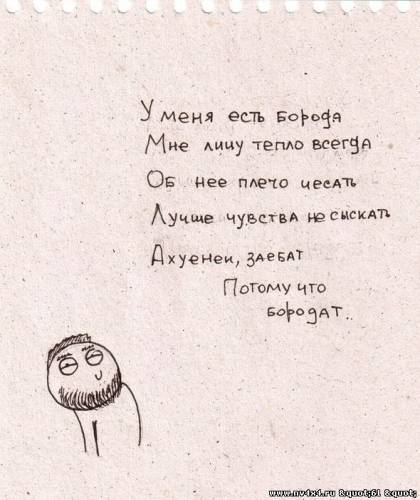 У меня есть борода
Мне лицу тепло всегда
Об нее плечо чесать
Лучше чувства не сыскать
Ахуенен, заебат
Потому что
бородат..
www.nv4x4.ru &quot;61 &quot;